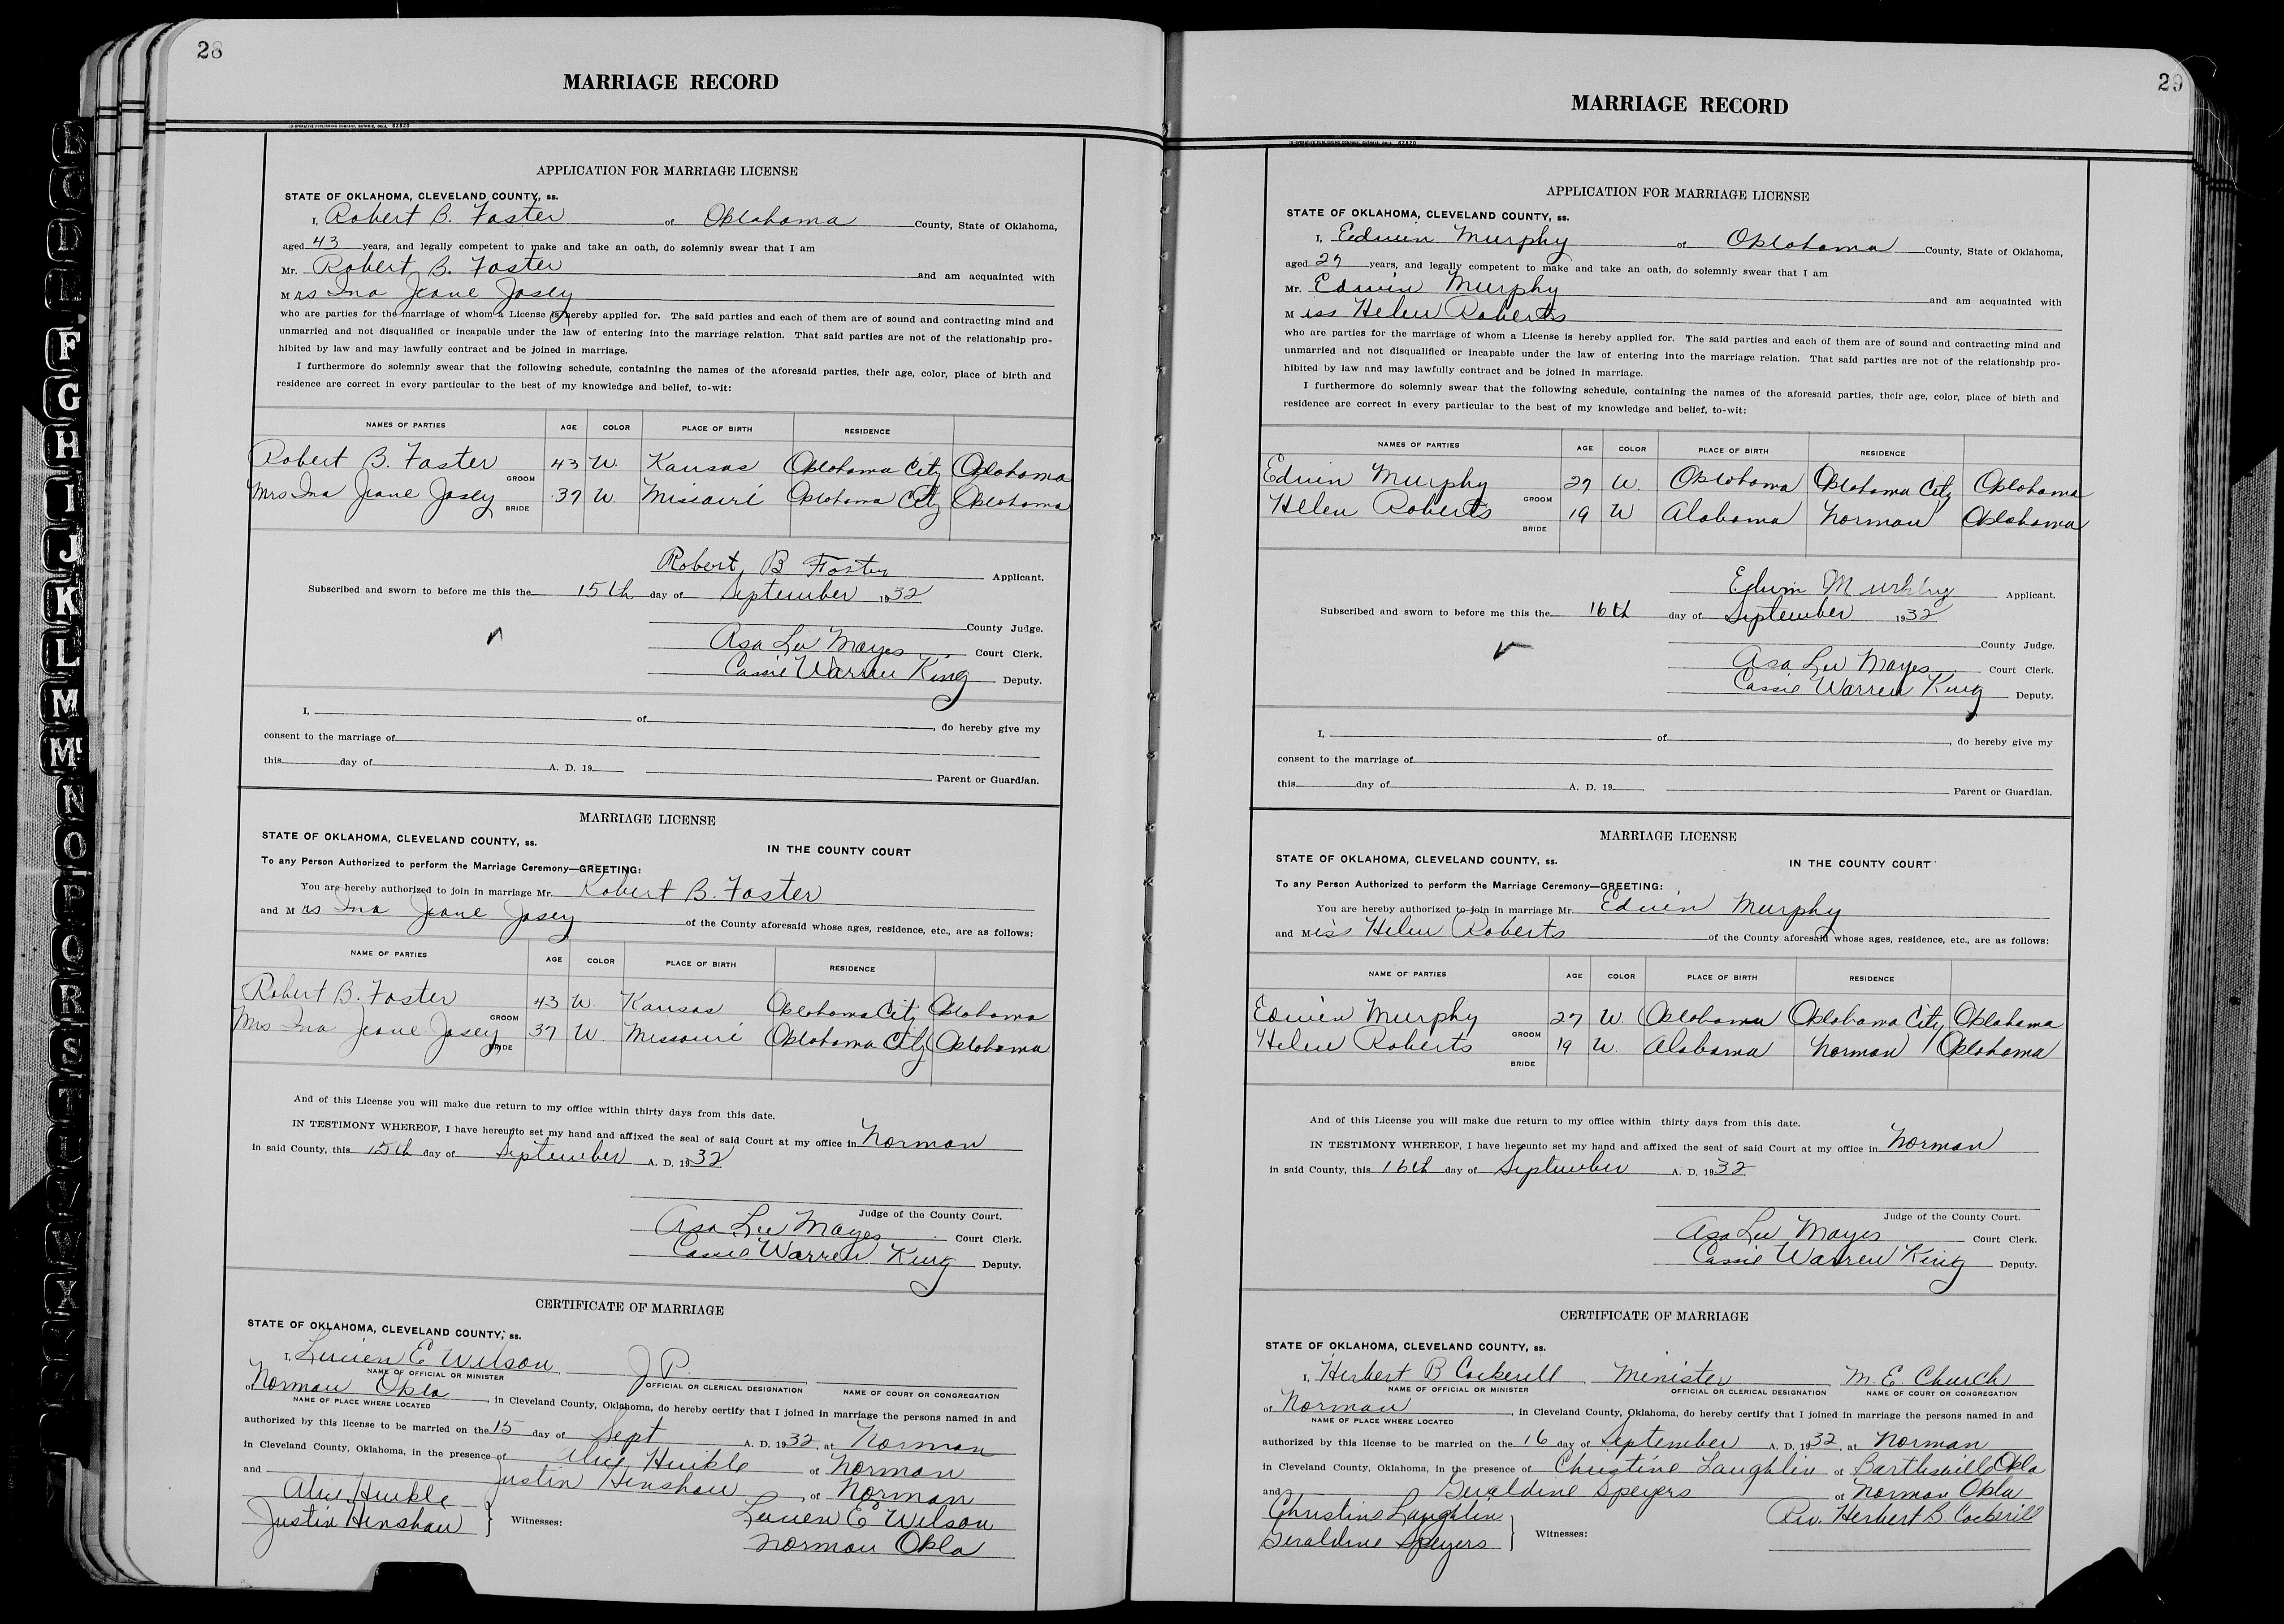 28
MARRIAGE RECORD
CO-OPERATIVE PUBLISHING COMPANY, GUTHRIE, OKLA. 62820
APPLICATION FOR MARRIAGE LICENSE
STATE OF OKLAHOMA, CLEVELAND COUNTY, ss.
I, Robert B. Foster of Oklahoma County, State of Oklahoma,
aged 43 years, and legally competent to make and take an oath, do solemnly swear that I am
Mr. Robert B. Foster and am acquainted with
Mrs Ina Jeane Josey
who are parties for the marriage of whom a License is hereby applied for. The said parties and each of them are of sound and contracting mind and
unmarried and not disqualified or incapable under the law of entering into the marriage relation. That said parties are not of the relationship pro-
hibited by law and may lawfully contract and be joined in marriage.
I furthermore do solemnly swear that the following schedule, containing the names of the aforesaid parties, their age, color, place of birth and
residence are correct in every particular to the best of my knowledge and belief, to-wit:
NAMES OF PARTIES AGE COLOR PLACE OF BIRTH RESIDENCE
Robert B. Foster GROOM 43 W. Kansas Oklahoma City Oklahoma
Mrs Ina Jeane Josey BRIDE 37 W. Missouri Oklahoma City Oklahoma
Robert B Foster Applicant.
Subscribed and sworn to before me this the 15th day of September 1932
County Judge.
Asa Lee Mayes Court Clerk.
Cassie Warren King Deputy.
I, of , do hereby give my
consent to the marriage of
this day of A. D. 19 Parent or Guardian.
MARRIAGE LICENSE
STATE OF OKLAHOMA, CLEVELAND COUNTY, ss. IN THE COUNTY COURT
To any Person Authorized to perform the Marriage Ceremony—GREETING:
You are hereby authorized to join in marriage Mr. Robert B. Foster
and Mrs Ina Jeane Josey of the County aforesaid whose ages, residence, etc., are as follows:
NAME OF PARTIES AGE COLOR PLACE OF BIRTH RESIDENCE
Robert B. Foster GROOM 43 W. Kansas Oklahoma City Oklahoma
Mrs Ina Jeane Josey BRIDE 37 W. Missouri Oklahoma City Oklahoma
And of this License you will make due return to my office within thirty days from this date.
IN TESTIMONY WHEREOF, I have hereunto set my hand and affixed the seal of said Court at my office in Norman
in said County, this 15th day of September A. D. 1932
Judge of the County Court.
Asa Lee Mayes Court Clerk.
Cassie Warren King Deputy.
CERTIFICATE OF MARRIAGE
STATE OF OKLAHOMA, CLEVELAND COUNTY, ss.
I, Lucien E Wilson J P.
NAME OF OFFICIAL OR MINISTER OFFICIAL OR CLERICAL DESIGNATION NAME OF COURT OR CONGREGATION
of Norman Okla , in Cleveland County, Oklahoma, do hereby certify that I joined in marriage the persons named in and
NAME OF PLACE WHERE LOCATED
authorized by this license to be married on the 15 day of Sept A. D. 1932, at Norman
in Cleveland County, Oklahoma, in the presence of Alice Hinkle of Norman
and Justin Henshaw , of Norman
Alice Hinkle
Justin Henshaw } Witnesses: Lucien E Wilson
Norman Okla
29
MARRIAGE RECORD
CO-OPERATIVE PUBLISHING COMPANY, GUTHRIE, OKLA. 62820
APPLICATION FOR MARRIAGE LICENSE
STATE OF OKLAHOMA, CLEVELAND COUNTY, ss.
I, Edwin Murphy of Oklahoma County, State of Oklahoma,
aged 27 years, and legally competent to make and take an oath, do solemnly swear that I am
Mr. Edwin Murphy and am acquainted with
Miss Helen Roberts
who are parties for the marriage of whom a License is hereby applied for. The said parties and each of them are of sound and contracting mind and
unmarried and not disqualified or incapable under the law of entering into the marriage relation. That said parties are not of the relationship pro-
hibited by law and may lawfully contract and be joined in marriage.
I furthermore do solemnly swear that the following schedule, containing the names of the aforesaid parties, their age, color, place of birth and
residence are correct in every particular to the best of my knowledge and belief, to-wit:
NAMES OF PARTIES AGE COLOR PLACE OF BIRTH RESIDENCE
Edwin Murphy GROOM 27 W. Oklahoma Oklahoma City Oklahoma
Helen Roberts BRIDE 19 W Alabama Norman Oklahoma
Edwin Murphy Applicant.
Subscribed and sworn to before me this the 16th day of September 1932
County Judge.
Asa Lee Mayes Court Clerk.
Cassie Warren King Deputy.
I, of , do hereby give my
consent to the marriage of
this day of A. D. 19 Parent or Guardian.
MARRIAGE LICENSE
STATE OF OKLAHOMA, CLEVELAND COUNTY, ss. IN THE COUNTY COURT
To any Person Authorized to perform the Marriage Ceremony—GREETING:
You are hereby authorized to join in marriage Mr. Edwin Murphy
and Miss Helen Roberts of the County aforesaid whose ages, residence, etc., are as follows:
NAME OF PARTIES AGE COLOR PLACE OF BIRTH RESIDENCE
Edwin Murphy GROOM 27 W. Oklahoma Oklahoma City Oklahoma
Helen Roberts BRIDE 19 W. Alabama Norman Oklahoma
And of this License you will make due return to my office within thirty days from this date.
IN TESTIMONY WHEREOF, I have hereunto set my hand and affixed the seal of said Court at my office in Norman
in said County, this 16th day of September A. D. 1932
Judge of the County Court.
Asa Lee Mayes Court Clerk.
Cassie Warren King Deputy.
CERTIFICATE OF MARRIAGE
STATE OF OKLAHOMA, CLEVELAND COUNTY, ss.
I, Herbert B Cockerill , Minister , M. E. Church
NAME OF OFFICIAL OR MINISTER OFFICIAL OR CLERICAL DESIGNATION NAME OF COURT OR CONGREGATION
of Norman , in Cleveland County, Oklahoma, do hereby certify that I joined in marriage the persons named in and
NAME OF PLACE WHERE LOCATED
authorized by this license to be married on the 16 day of September A. D. 1932, at Norman
in Cleveland County, Oklahoma, in the presence of Christine Laughlin of Bartlesville Okla
and Geraldine Speyers of Norman Okla
Christine Laughlin Rev. Herbert B. Cockerill
Geraldine Speyers } Witnesses:
B
C
D
E
F
G
H
I
J
K
L
M
Mc
N
O
P
Q
R
S
T